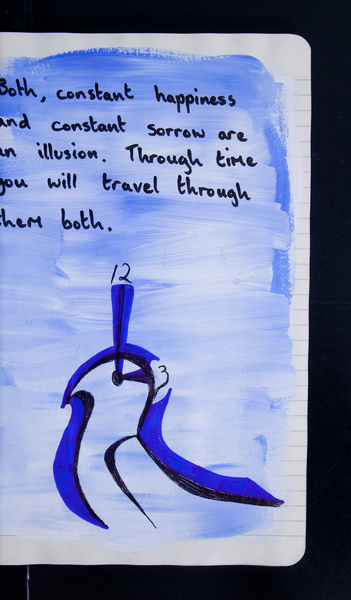 Both, constant happiness
and constant sorrow are
an illusion. Through time
you will travel through
them both.
12
3